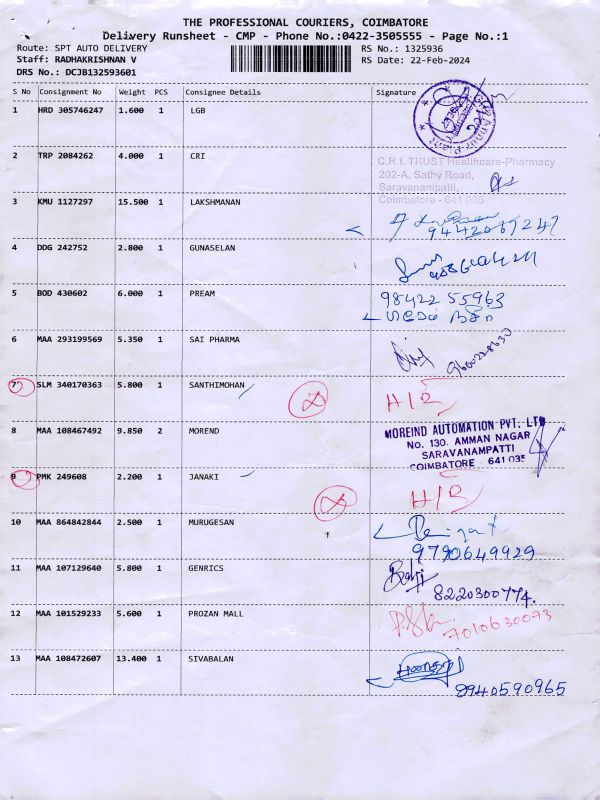 THE PROFESSIONAL COURIERS, COIMBATORE
Delivery Runsheet - CMP - Phone No.:0422-3505555 - Page No.:1
Route: SPT AUTO DELIVERY RS No.: 1325936
Staff: RADHAKRISHNAN V RS Date: 22-Feb-2024
DRS No.: DCJB132593601
S No Consignment No Weight PCS Consignee Details Signature
1 HRD 305746247 1.600 1 LGB
2 TRP 2084262 4.000 1 CRI
C.R.I. TRUST Healthcare-Pharmacy
202-A, Sathy Road,
Saravanampatti,
Coimbatore - 641 035
3 KMU 1127297 15.500 1 LAKSHMANAN
4 DDG 242752 2.800 1 GUNASELAN
5 BOD 430602 6.000 1 PREAM
98422 55963
6 MAA 293199569 5.350 1 SAI PHARMA
7 SLM 340170363 5.800 1 SANTHIMOHAN
8 MAA 108467492 9.850 2 MOREND
MOREIND AUTOMATION PVT. LTD
No. 130. AMMAN NAGAR
SARAVANAMPATTI
COIMBATORE - 641 035
9 PMK 249608 2.200 1 JANAKI
10 MAA 864842844 2.500 1 MURUGESAN
9790649929
11 MAA 107129640 5.800 1 GENRICS
8220300774.
12 MAA 101529233 5.600 1 PROZAN MALL
7010630073
13 MAA 108472607 13.400 1 SIVABALAN
8940590965